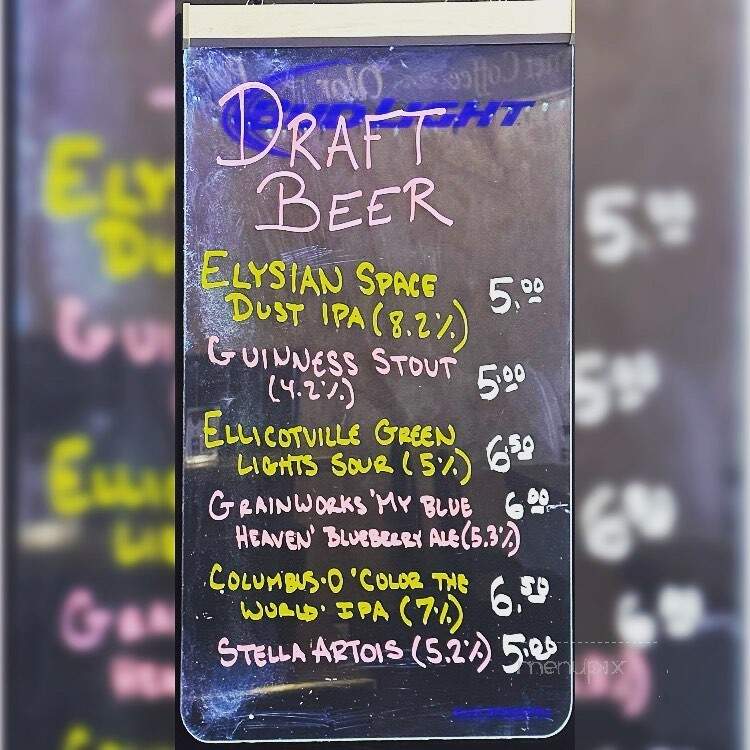 BUD LIGHT
DRAFT
BEER
ELYSIAN SPACE 5.00
DUST IPA (8.2%)
GUINNESS STOUT
(4.2%) 5.00
ELLICOTVILLE GREEN 6.50
LIGHTS SOUR (5%)
GRAINWORKS 'MY BLUE 6.00
HEAVEN' BLUEBERRY ALE (5.3%)
COLUMBUS·O 'COLOR THE 6.50
WORLD' IPA (7%)
STELLA ARTOIS (5.2%) 5.00
menupix